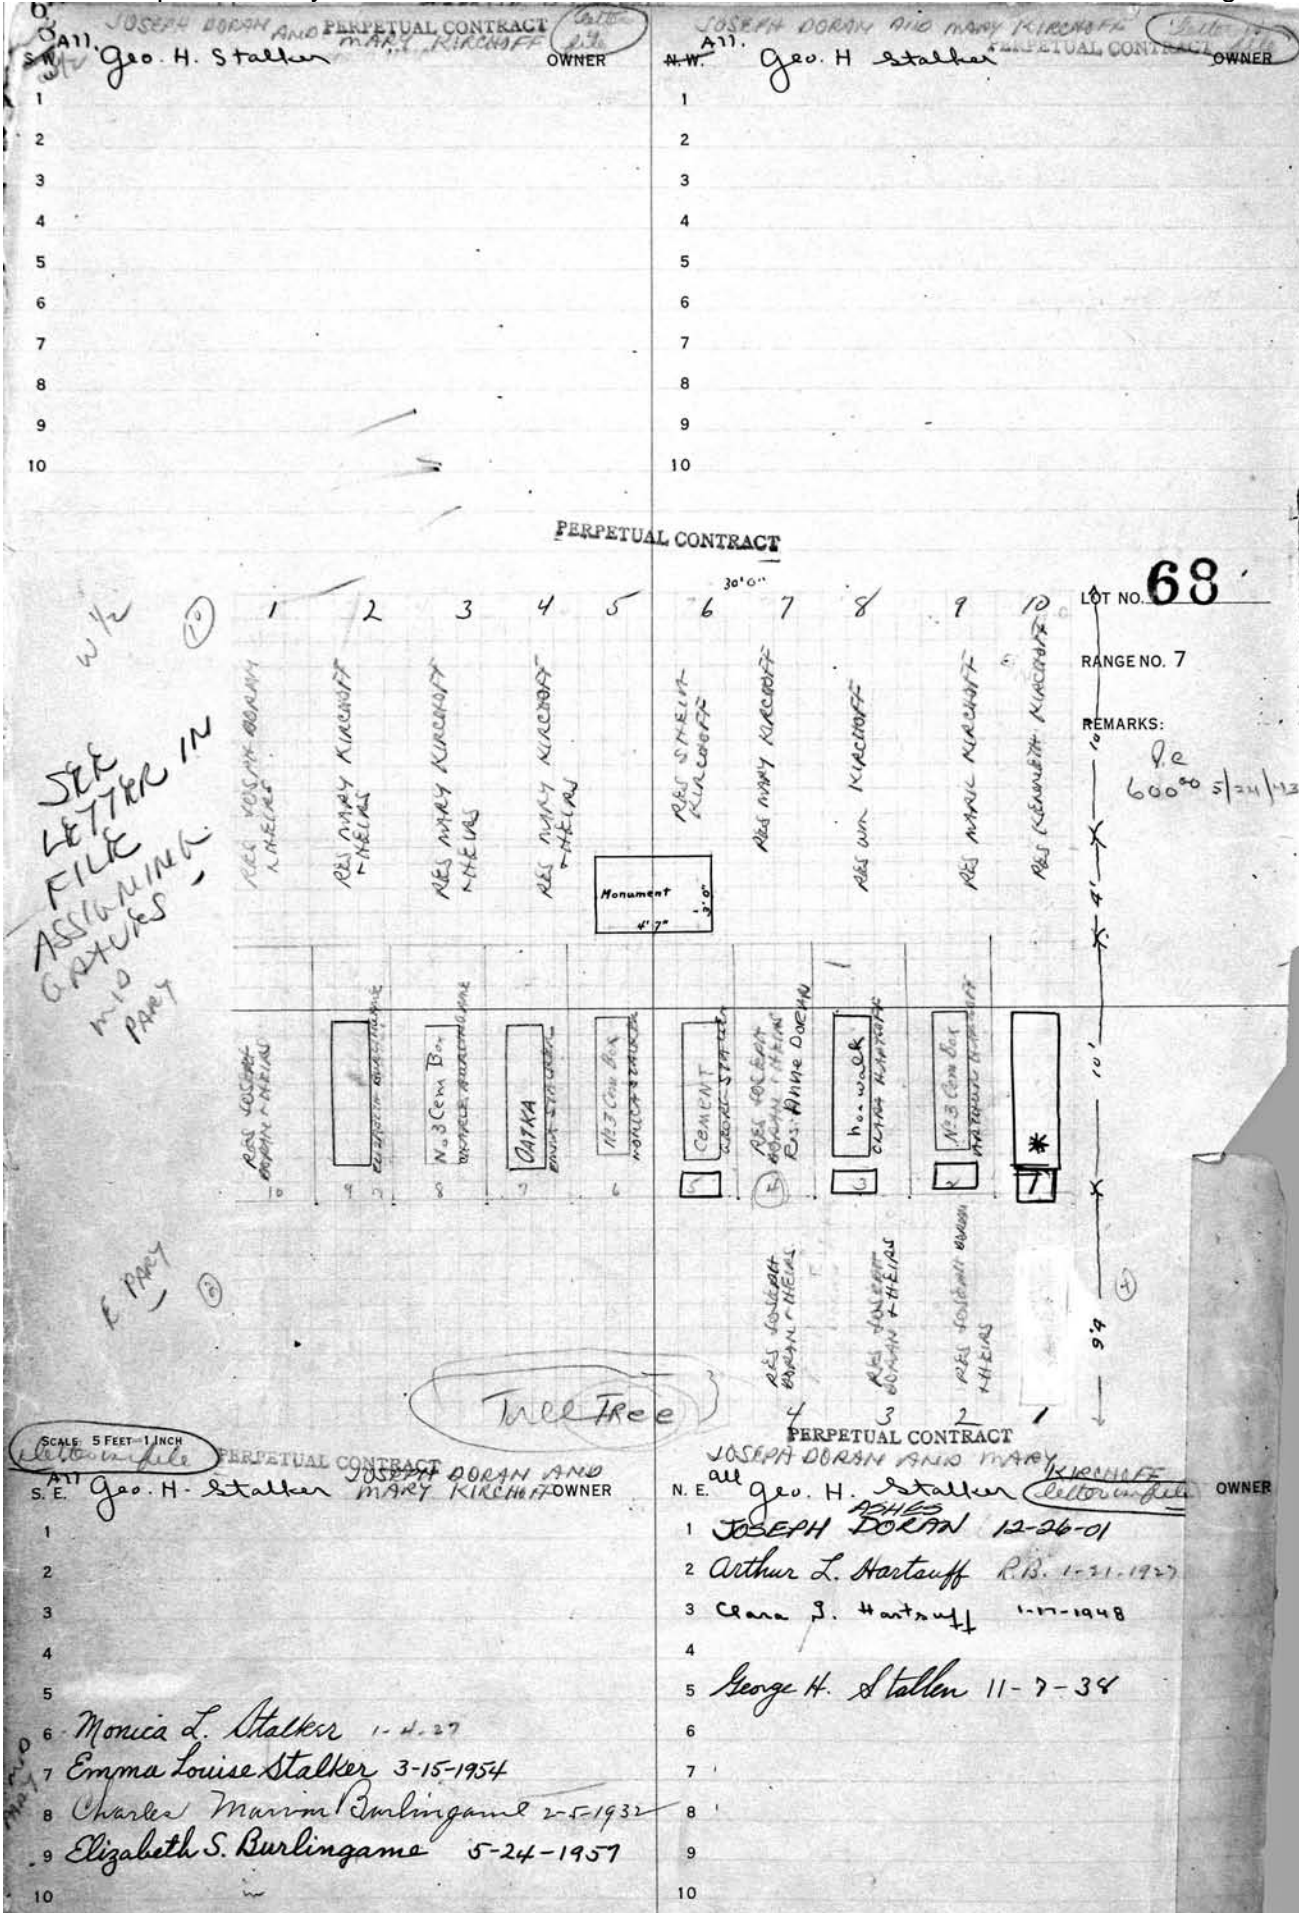 JOSEPH DORAN AND MARY KIRCHOFF
PERPETUAL CONTRACT
letter file
All.
S.W. Geo. H. Stalker OWNER
1
2
3
4
5
6
7
8
9
10
JOSEPH DORAN AND MARY KIRCHOFF
PERPETUAL CONTRACT
All.
N.W. Geo. H Stalker OWNER
1
2
3
4
5
6
7
8
9
10
PERPETUAL CONTRACT
30'0"
LOT NO. 68
RANGE NO. 7
REMARKS:
P.C
600.00
W 1/2
10
1 2 3 4 5 6 7 8 9 10
RES JOSEPH DORAN
& HEIRS
RES MARY KIRCHOFF
& HEIRS
RES MARY KIRCHOFF
& HEIRS
RES MARY KIRCHOFF
& HEIRS
RES
KIRCHOFF
RES MARY KIRCHOFF
RES WM KIRCHOFF
RES MARK KIRCHOFF
RES KENNETH KIRCHOFF
SEE
LETTER IN
FILE
ASSIGNING
GRAVES
MID
PART
Monument
4'7"
3'0"
10'
4'
10'
RES JOSEPH
DORAN & HEIRS
ELIZABETH BURLINGAME
No 3 Cem Box
CHARLES BURLINGAME
OATKA
EMMA STALKER
No 3 Cem Box
MONICA STALKER
CEMENT
GEORGE STALKER
RES JOSEPH
DORAN & HEIRS
Res: Anne Doran
norwalk
CLARA HARTSUFF
No 3 Cem Box
ARTHUR HARTSUFF
*
10 9 8 7 6 5 4 3 2 1
E PART
RES JOSEPH
DORAN & HEIRS
RES JOSEPH
DORAN & HEIRS
RES JOSEPH DORAN
& HEIRS
Tree Tree
4 3 2 1
SCALE: 5 FEET=1 INCH
letter in file
PERPETUAL CONTRACT
JOSEPH DORAN AND
MARY KIRCHOFF
All
S.E. Geo. H. Stalker OWNER
1
2
3
4
5
6 Monica L. Stalker 1-4-27
7 Emma Louise Stalker 3-15-1954
8 Charles Marvin Burlingame 2-5-1932
9 Elizabeth S. Burlingame 5-24-1957
10
MID
PART
PERPETUAL CONTRACT
JOSEPH DORAN AND MARY
KIRCHOFF
all
N.E. Geo. H. Stalker letter in file OWNER
ASHES
1 JOSEPH DORAN 12-26-01
2 Arthur L. Hartsuff R.B. 1-21-1927
3 Clara J. Hartsuff 1-17-1948
4
5 George H. Stalker 11-7-38
6
7
8
9
10